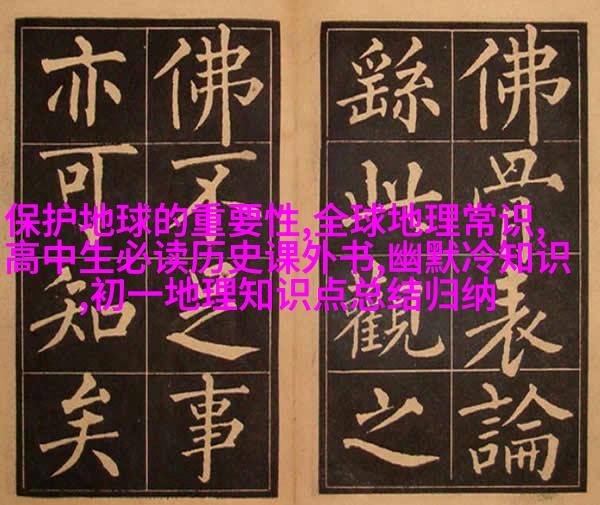 保护地球的重要性,全球地理常识,
高中生必读历史课外书,幽默冷知识
,初一地理知识点总结归纳
佛骨表論
繇此觀之
佛不足事
亦可知矣